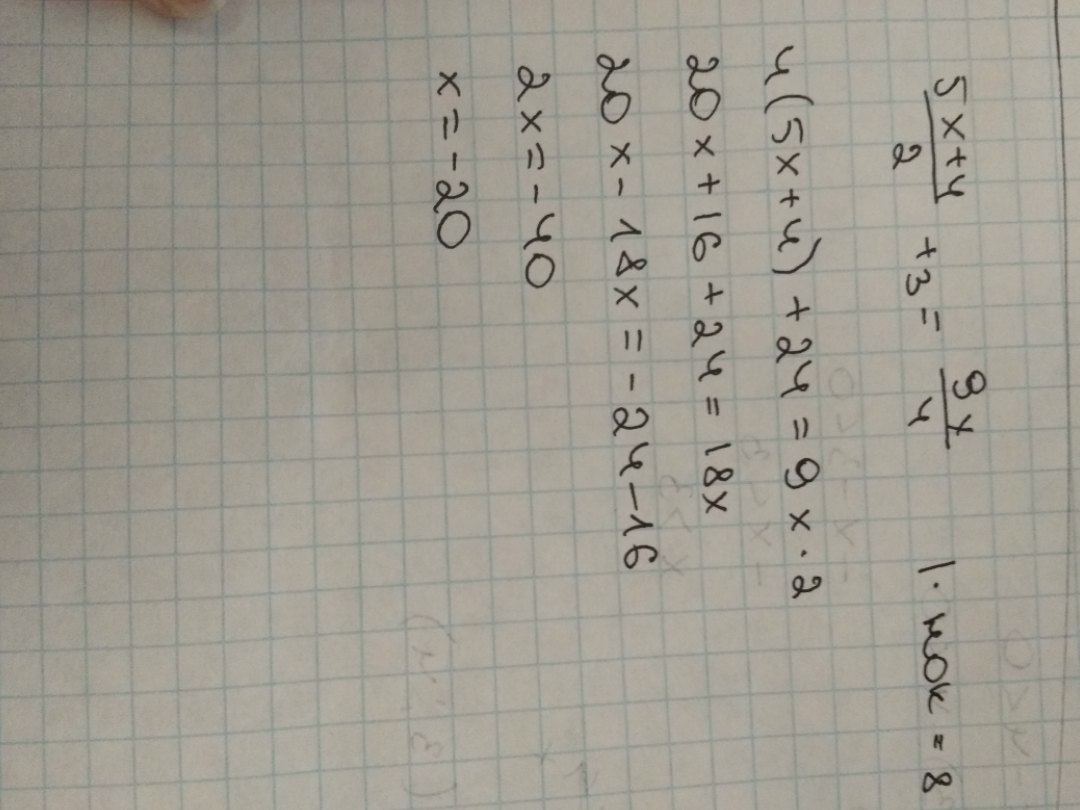 5x+4/2 + 3 = 9x/4 | · НОК = 8
4(5x+4) + 24 = 9x · 2
20x + 16 + 24 = 18x
20x - 18x = -24 - 16
2x = -40
x = -20